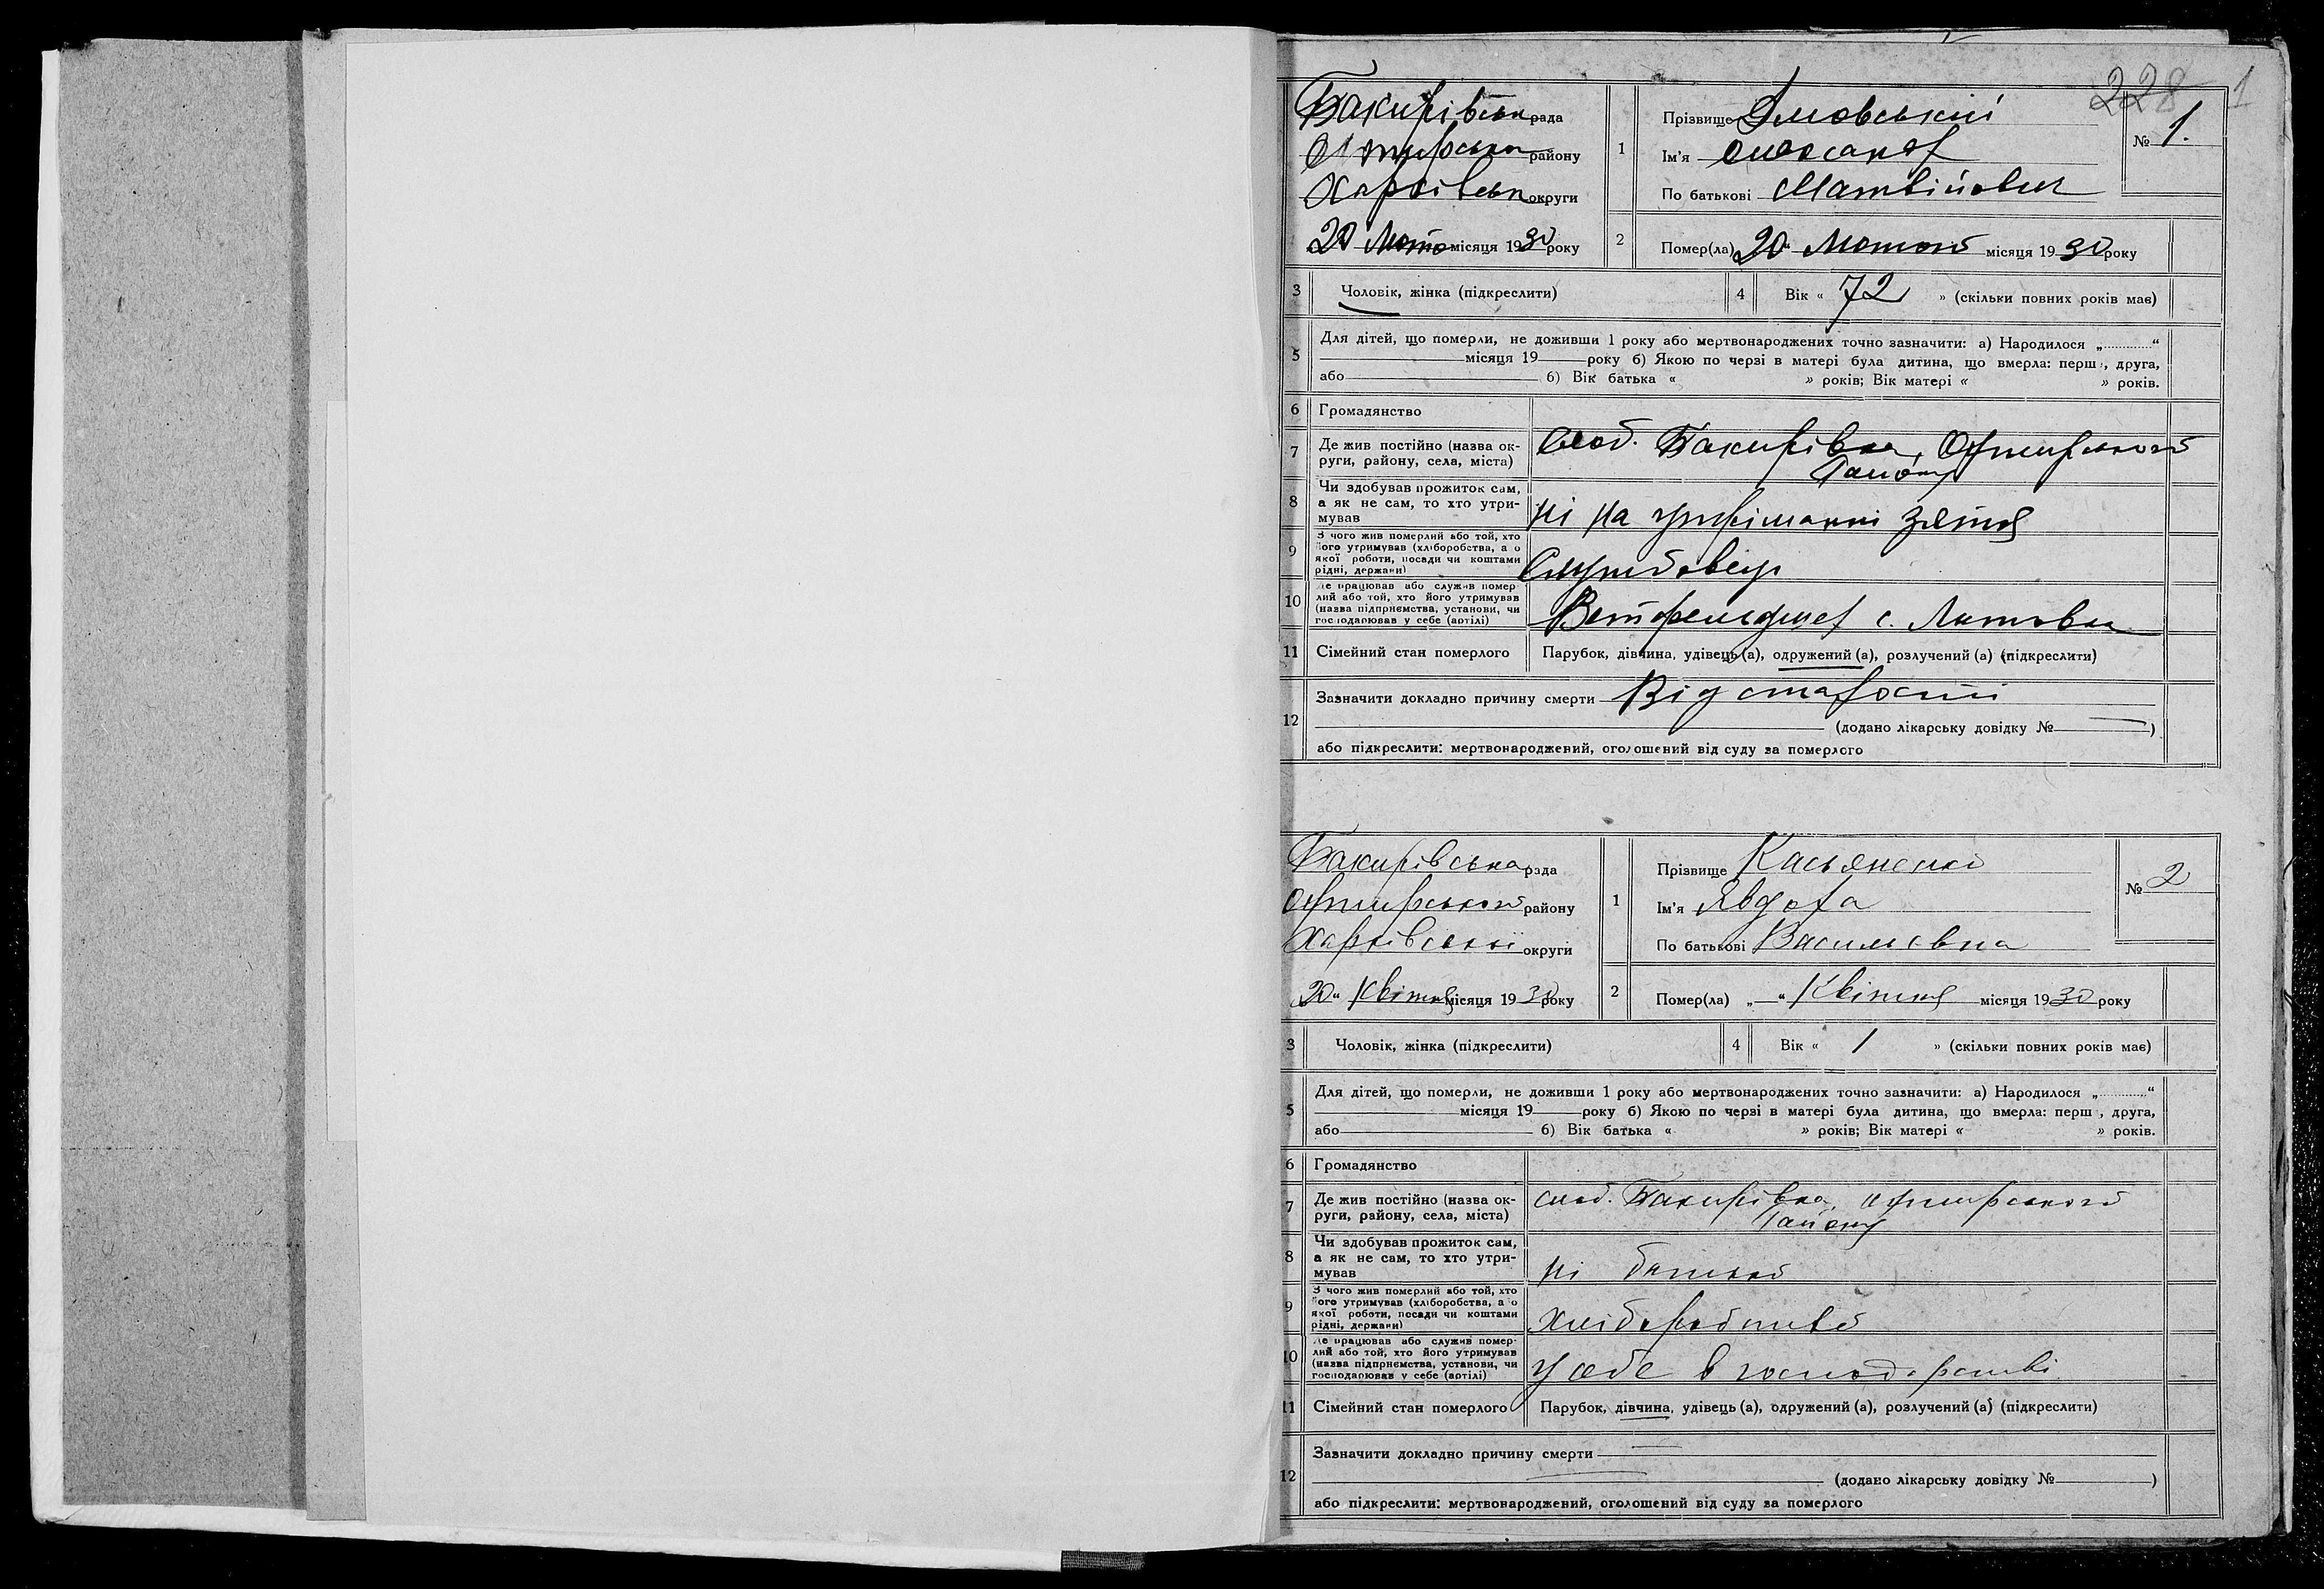 228 1
Бакирівська рада
Охтирського району
Харківськ округи
20 Лютого місяця 1930 року
1
Прізвище
Ім'я Олександ
По батькові Матвійович
№ 1.
2
Помер(ла) 20 " Лютого місяця 1930 року
3 Чоловік, жінка (підкреслити)
4 Вік « 72 » (скільки повних років має)
5 Для дітей, що померли, не доживши 1 року або мертвонароджених точно зазначити: а) Народилося „ “
місяця 19 року б) Якою по черзі в матері була дитина, що вмерла: перш, друга,
або б) Вік батька « » років; Вік матері « » років.
6 Громадянство
7 Де жив постійно (назва ок-
руги, району, села, міста)
слоб. Бакирівка, Охтирського
Району
8 Чи здобував прожиток сам,
а як не сам, то хто утри-
мував
ні на утриманні зятя
9 З чого жив померлий або той, хто
його утримував (хліборобства, а о
якої роботи, посади чи коштами
рідні, держави)
Службовець
10 Де працював або служив помер-
лий або той, хто його утримував
(назва підприємства, установи, чи
господарював у себе (артілі)
Ветфельдшер с.
11 Сімейний стан померлого
Парубок, дівчина, удівець (а), одружений (а), розлучений (а) (підкреслити)
12 Зазначити докладно причину смерти Від старости
(додано лікарську довідку № — )
або підкреслити: мертвонароджений, оголошений від суду за померлого
Бакирівська рада
Охтирського району
Харківської округи
20 " Квітня місяця 1930 року
1
Прізвище
Ім'я Явдоха
По батькові Василівна
№ 2
2
Помер(ла) „ — “ Квітня місяця 1930 року
3 Чоловік, жінка (підкреслити)
4 Вік « 1 » (скільки повних років має)
5 Для дітей, що померли, не доживши 1 року або мертвонароджених точно зазначити: а) Народилося „ “
місяця 19 року б) Якою по черзі в матері була дитина, що вмерла: перш , друга,
або б) Вік батька « » років; Вік матері « » років.
6 Громадянство
7 Де жив постійно (назва ок-
руги, району, села, міста)
слоб. Бакирівка, Охтирського
Району
8 Чи здобував прожиток сам,
а як не сам, то хто утри-
мував
ні батько
9 З чого жив померлий або той, хто
його утримував (хліборобства, а о
якої роботи, посади чи коштами
рідні, держави)
хліборобство
10 Де працював або служив помер-
лий або той, хто його утримував
(назва підприємства, установи, чи
господарював у себе (артілі)
у себе в господарстві
11 Сімейний стан померлого
Парубок, дівчина, удівець (а), одружений (а), розлучений (а) (підкреслити)
12 Зазначити докладно причину смерти —
(додано лікарську довідку № )
або підкреслити: мертвонароджений, оголошений від суду за померлого